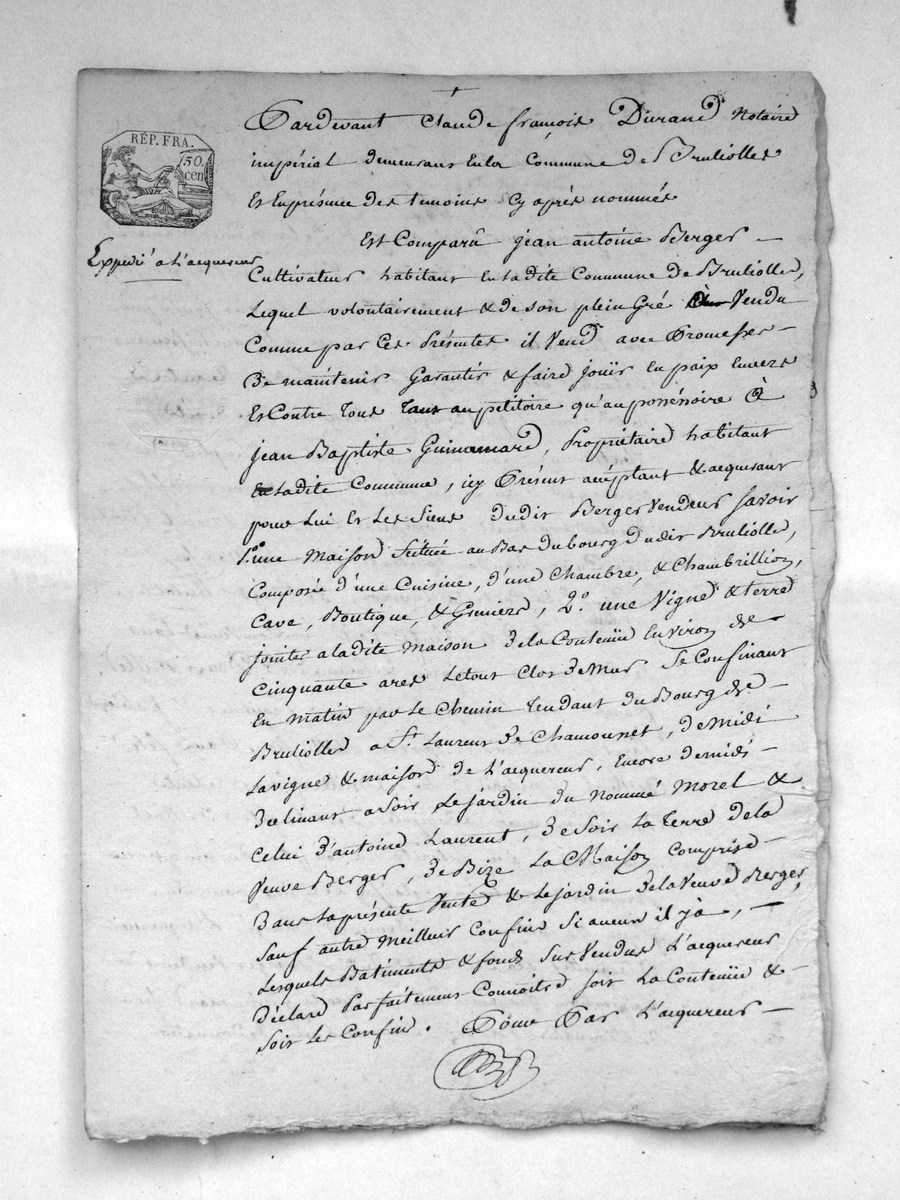 RÉP. FRA.
50.
cen
Expedié a L'acquereur
Pardevant Claude françois Durand Notaire
impérial demeurant Enla Commune de Brulioles
Et Enprésence des temoins cy après nommés
Est Comparû jean antoine Berger –
Cultivateur habitant Ensadite Commune de Brulioles,
Lequel volontairement & de son plein Gré à Vendu
Comme par Ces Présentes il Vend avec Promesse –
De maintenir Garantir & faire jouir En paix Envers
Et Contre tous tant au pétitoire qu'au possessoire À
jean Baptiste Guinamard, Propriétaire habitant
Ensadite Commune, icy Présent acceptant & acquerant
pour Lui Et Les Siens dudit Berger Vendeur Savoir
1.º une Maison Scituée au Bas du bourg Dudit Brulioles,
Composée d'une Cuisine, d'une Chambre, & Chambrillion,
Cave, Boutique, & Greniers, 2.º une Vigne & terre
jointes aladite Maison De la Contenüe Environ de –
Cinquante ares Letout Clos De Mur Se Confinant
En matin par Le Chemin Tendant du Bourg de –
Brulioles a St. Laurent De Chamousset, De Midi
La vigne & maison de L'acquereur, Encore de midi –
Déclinant a Soir Le jardin du Nommé Morel &
Celui D'antoine Laurent, De Soir La Terre de la
Veuve Berger, De Bize La Maison Comprise –
Dans La présente Vente & Le jardin de la Veuve Berger,
Sauf autre Meilleurs Confins Si aucun il y à, –
Lesquels Batiments & fonds Sus Vendus L'acquereur
Déclare Parfaitement Connoitre soit La Contenüe &
Soit Les Confins. Pour Par L'acquereur –